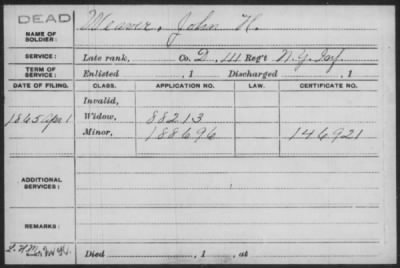 DEAD
NAME OF SOLDIER: Weaver, John H.
SERVICE: Late rank, Co. D, 111 Reg't N.Y. Inf.
TERM OF SERVICE: Enlisted , 1 Discharged , 1
DATE OF FILING. CLASS. APPLICATION NO. LAW. CERTIFICATE NO.
Invalid,
1865 Apr 1 Widow, 88213
Minor, 188696 146921
ADDITIONAL SERVICES:
REMARKS:
Died , 1 , at